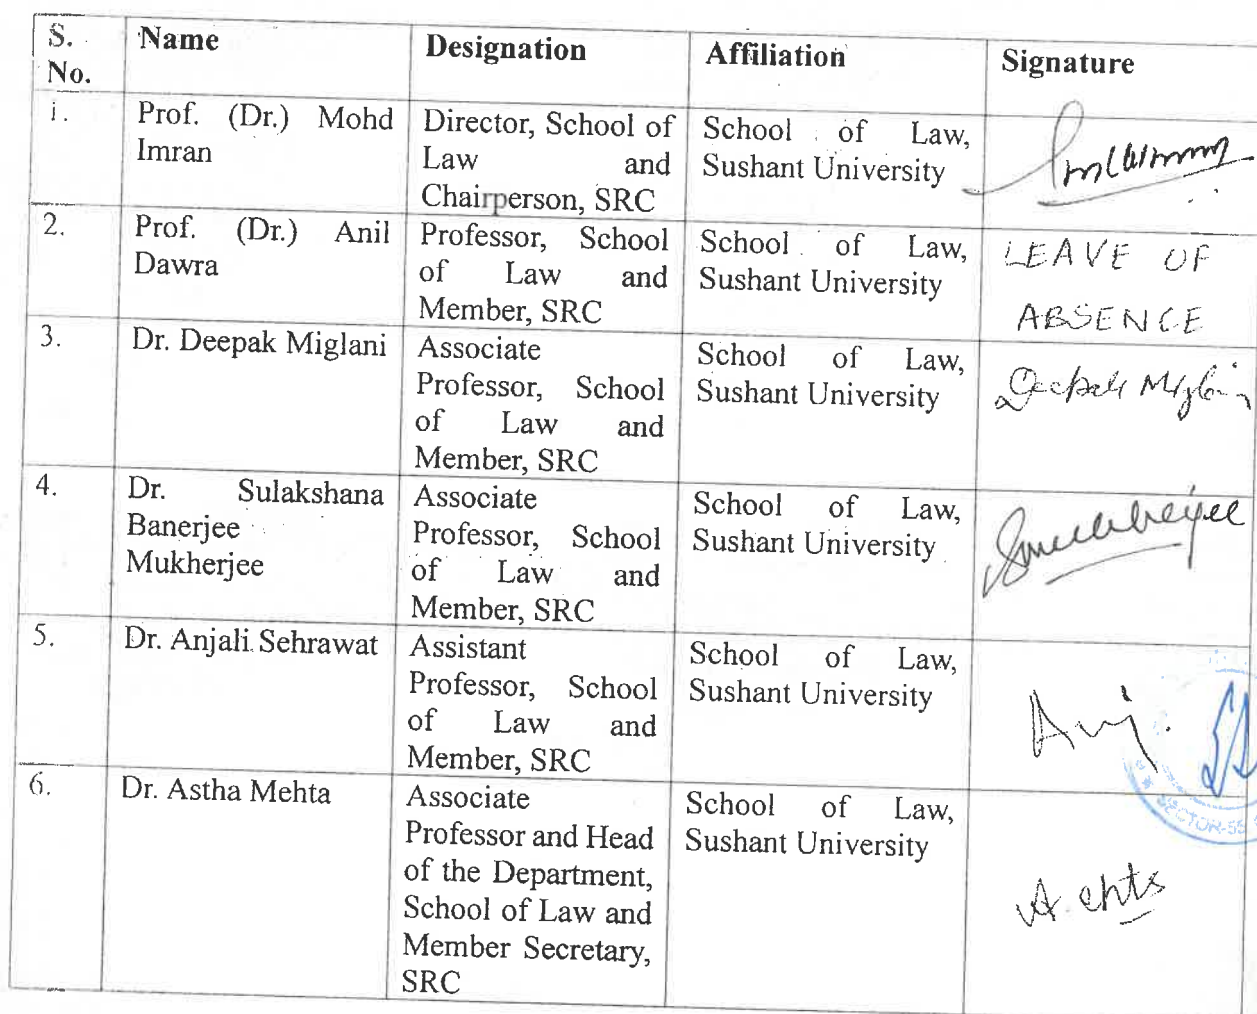 S. No. Name Designation Affiliation Signature
1. Prof. (Dr.) Mohd Imran Director, School of Law and Chairperson, SRC School of Law, Sushant University
2. Prof. (Dr.) Anil Dawra Professor, School of Law and Member, SRC School of Law, Sushant University LEAVE OF ABSENCE
3. Dr. Deepak Miglani Associate Professor, School of Law and Member, SRC School of Law, Sushant University Deepak Miglani
4. Dr. Sulakshana Banerjee Mukherjee Associate Professor, School of Law and Member, SRC School of Law, Sushant University
5. Dr. Anjali Sehrawat Assistant Professor, School of Law and Member, SRC School of Law, Sushant University Anj.
SECTOR-55
6. Dr. Astha Mehta Associate Professor and Head of the Department, School of Law and Member Secretary, SRC School of Law, Sushant University